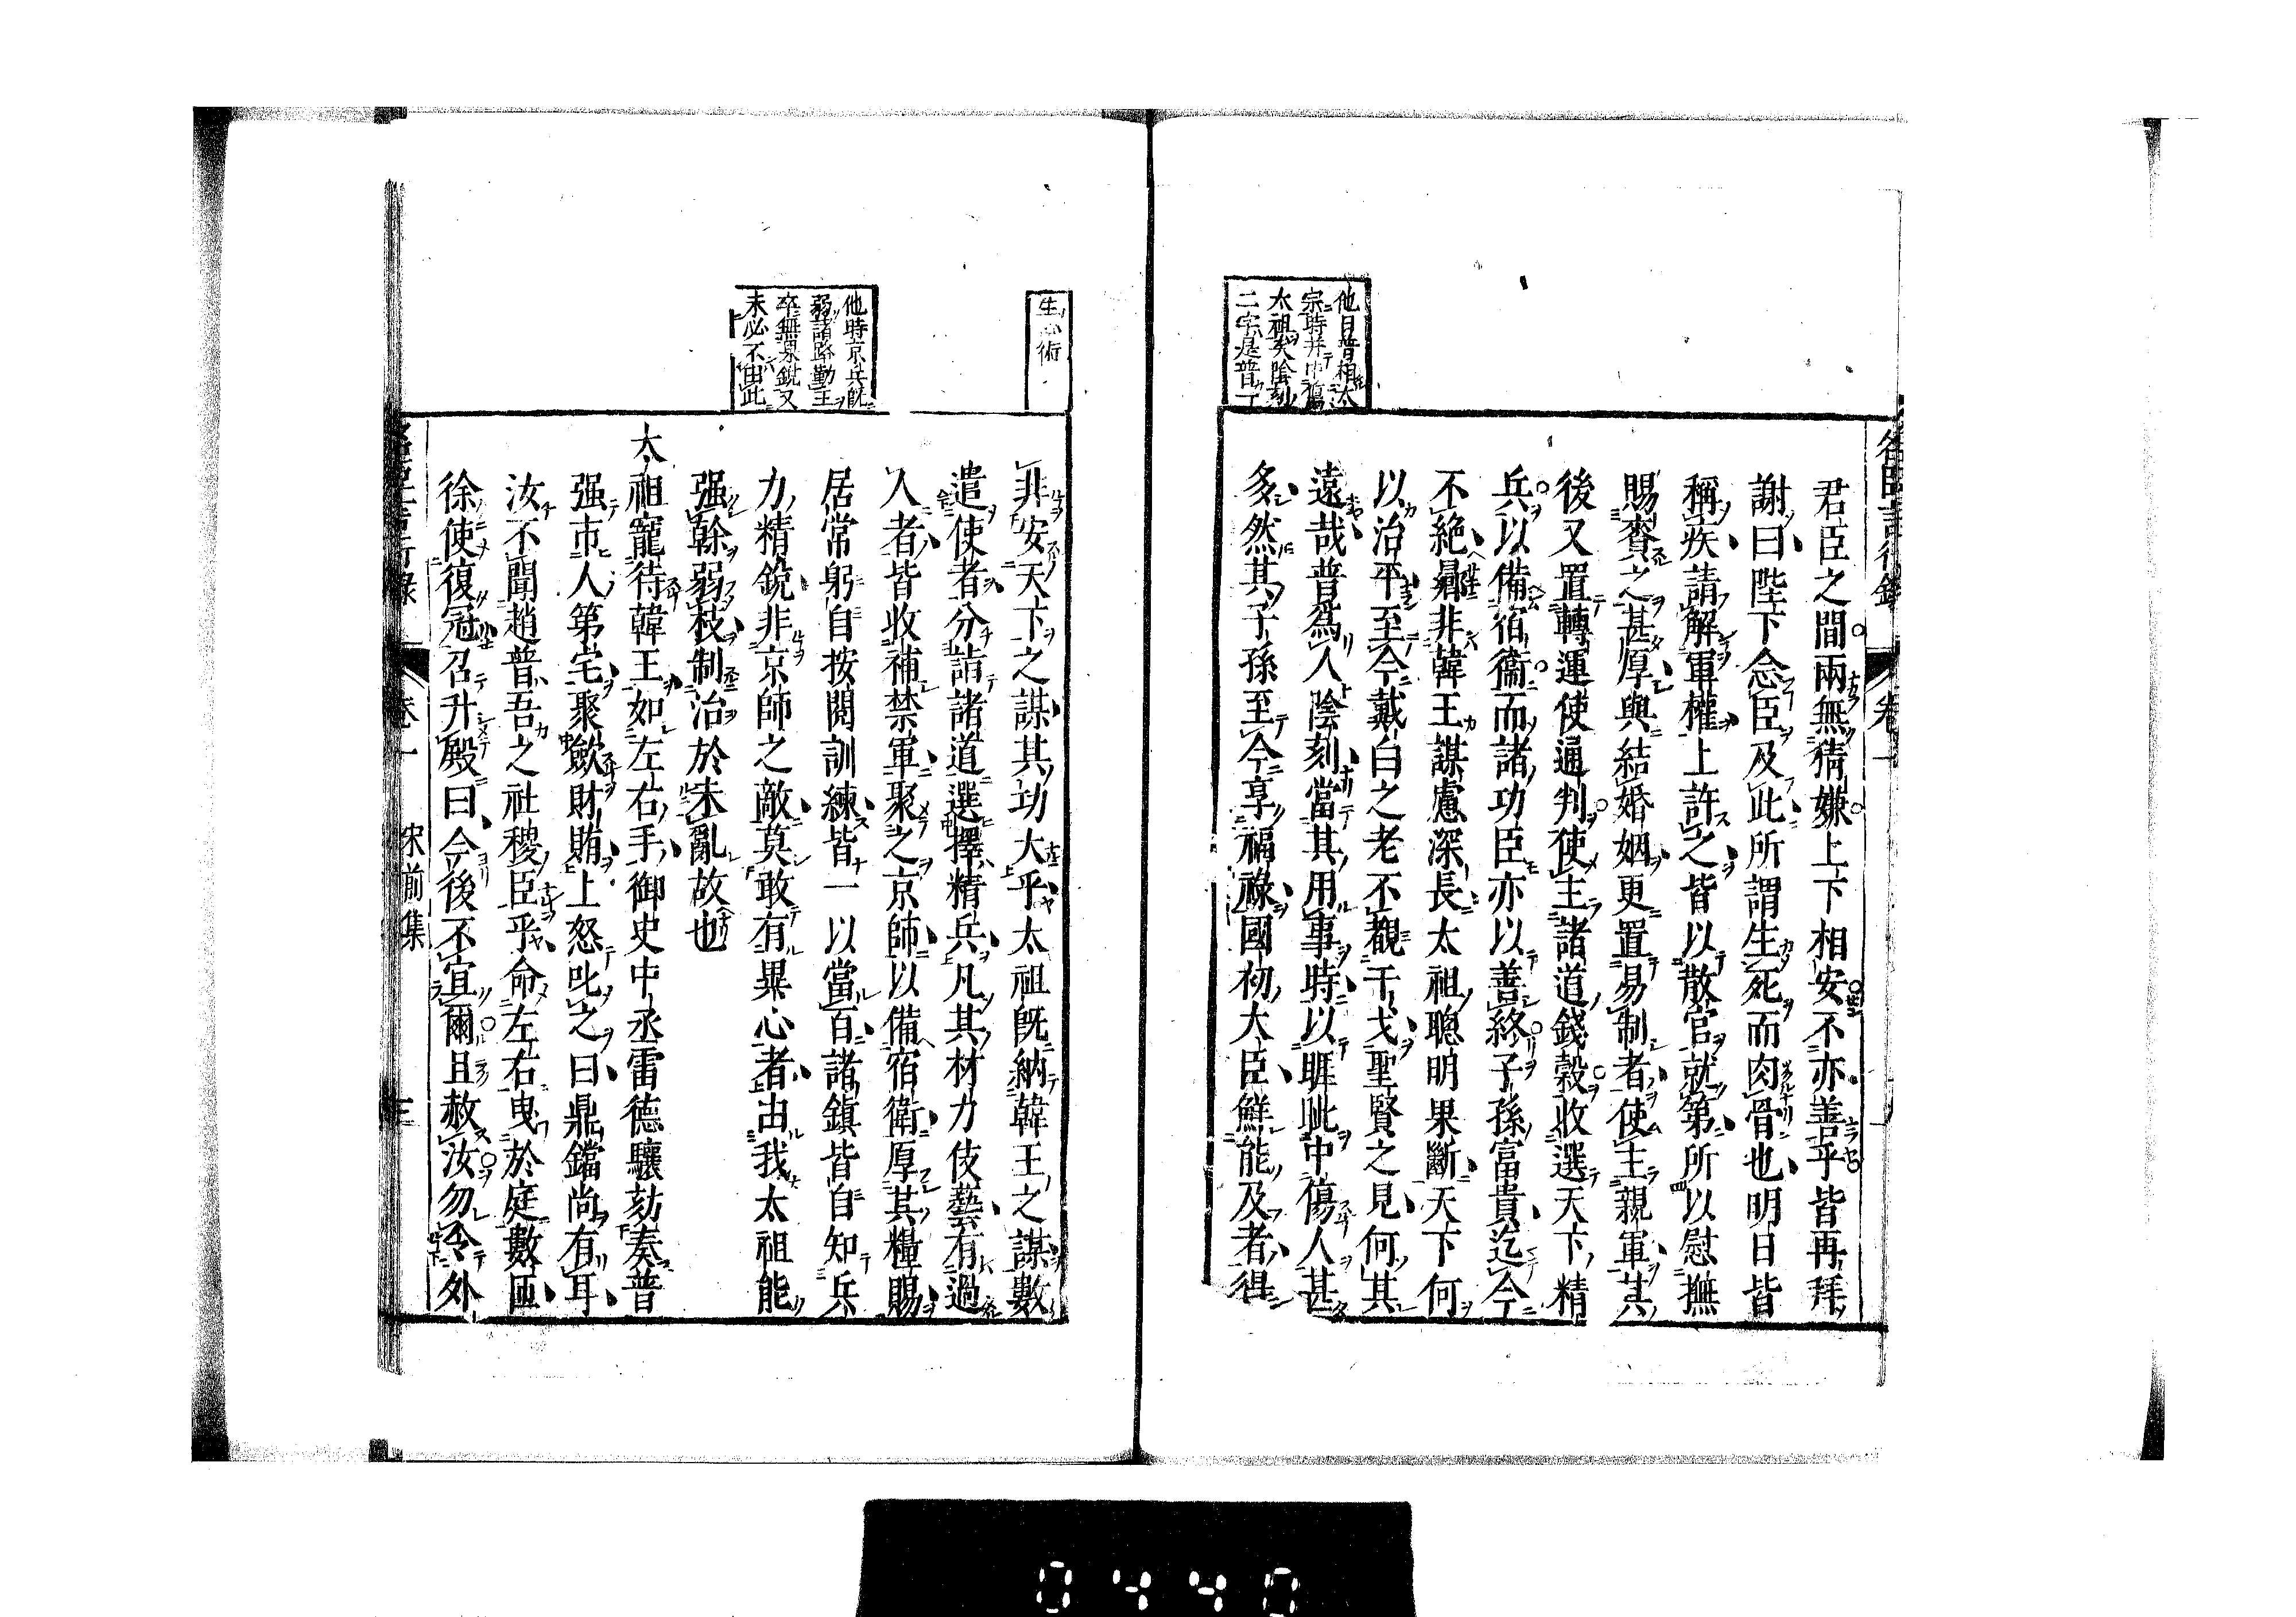 名臣言行錄 卷一
君臣之間兩無猜嫌上下相安不亦善乎皆再拜
謝曰陛下念臣及此所謂生死而肉骨也明日皆
稱疾請解軍權上許之皆以散官就第所以慰撫
賜賚之甚厚與結婚姻更置易制者使主親軍其
後又置轉運使通判使主諸道錢穀收選天下精
兵以備宿衞而諸功臣亦以善終子孫富貴迄今
不絶曏非韓王謀慮深長太祖聰明果斷天下何
以治平至今戴白之老不覩干戈聖賢之見何其
遠哉普爲人陰刻當其用事時以睚眦中傷人甚
多然其子孫至今享福祿國初大臣鮮能及者得
他日普相太
宗時并中傷
太祖矣陰刻
二字是普
非安天下之謀其功大乎太祖既納韓王之謀數
遣使者分詣諸道選擇精兵凡其材力伎藝有過
人者皆收補禁軍聚之京師以備宿衛厚其糧賜
居常躬自按閱訓練皆一以當百諸鎮皆自知兵
力精銳非京師之敵莫敢有異心者由我太祖能
强幹弱枝制治於未亂故也
太祖寵待韓王如左右手御史中丞雷德驤劾奏普
强市人第宅聚歛財賄上怒叱之曰鼎鐺尚有耳
汝不聞趙普吾之社稷臣乎命左右曳於庭數匝
徐使復冠召升殿曰今後不宜爾且赦汝勿令外
生心術
他時京兵既
弱諸路勤王
卒無累銳又
未必不由此
名臣言行錄 卷一 宋前集 三
0440